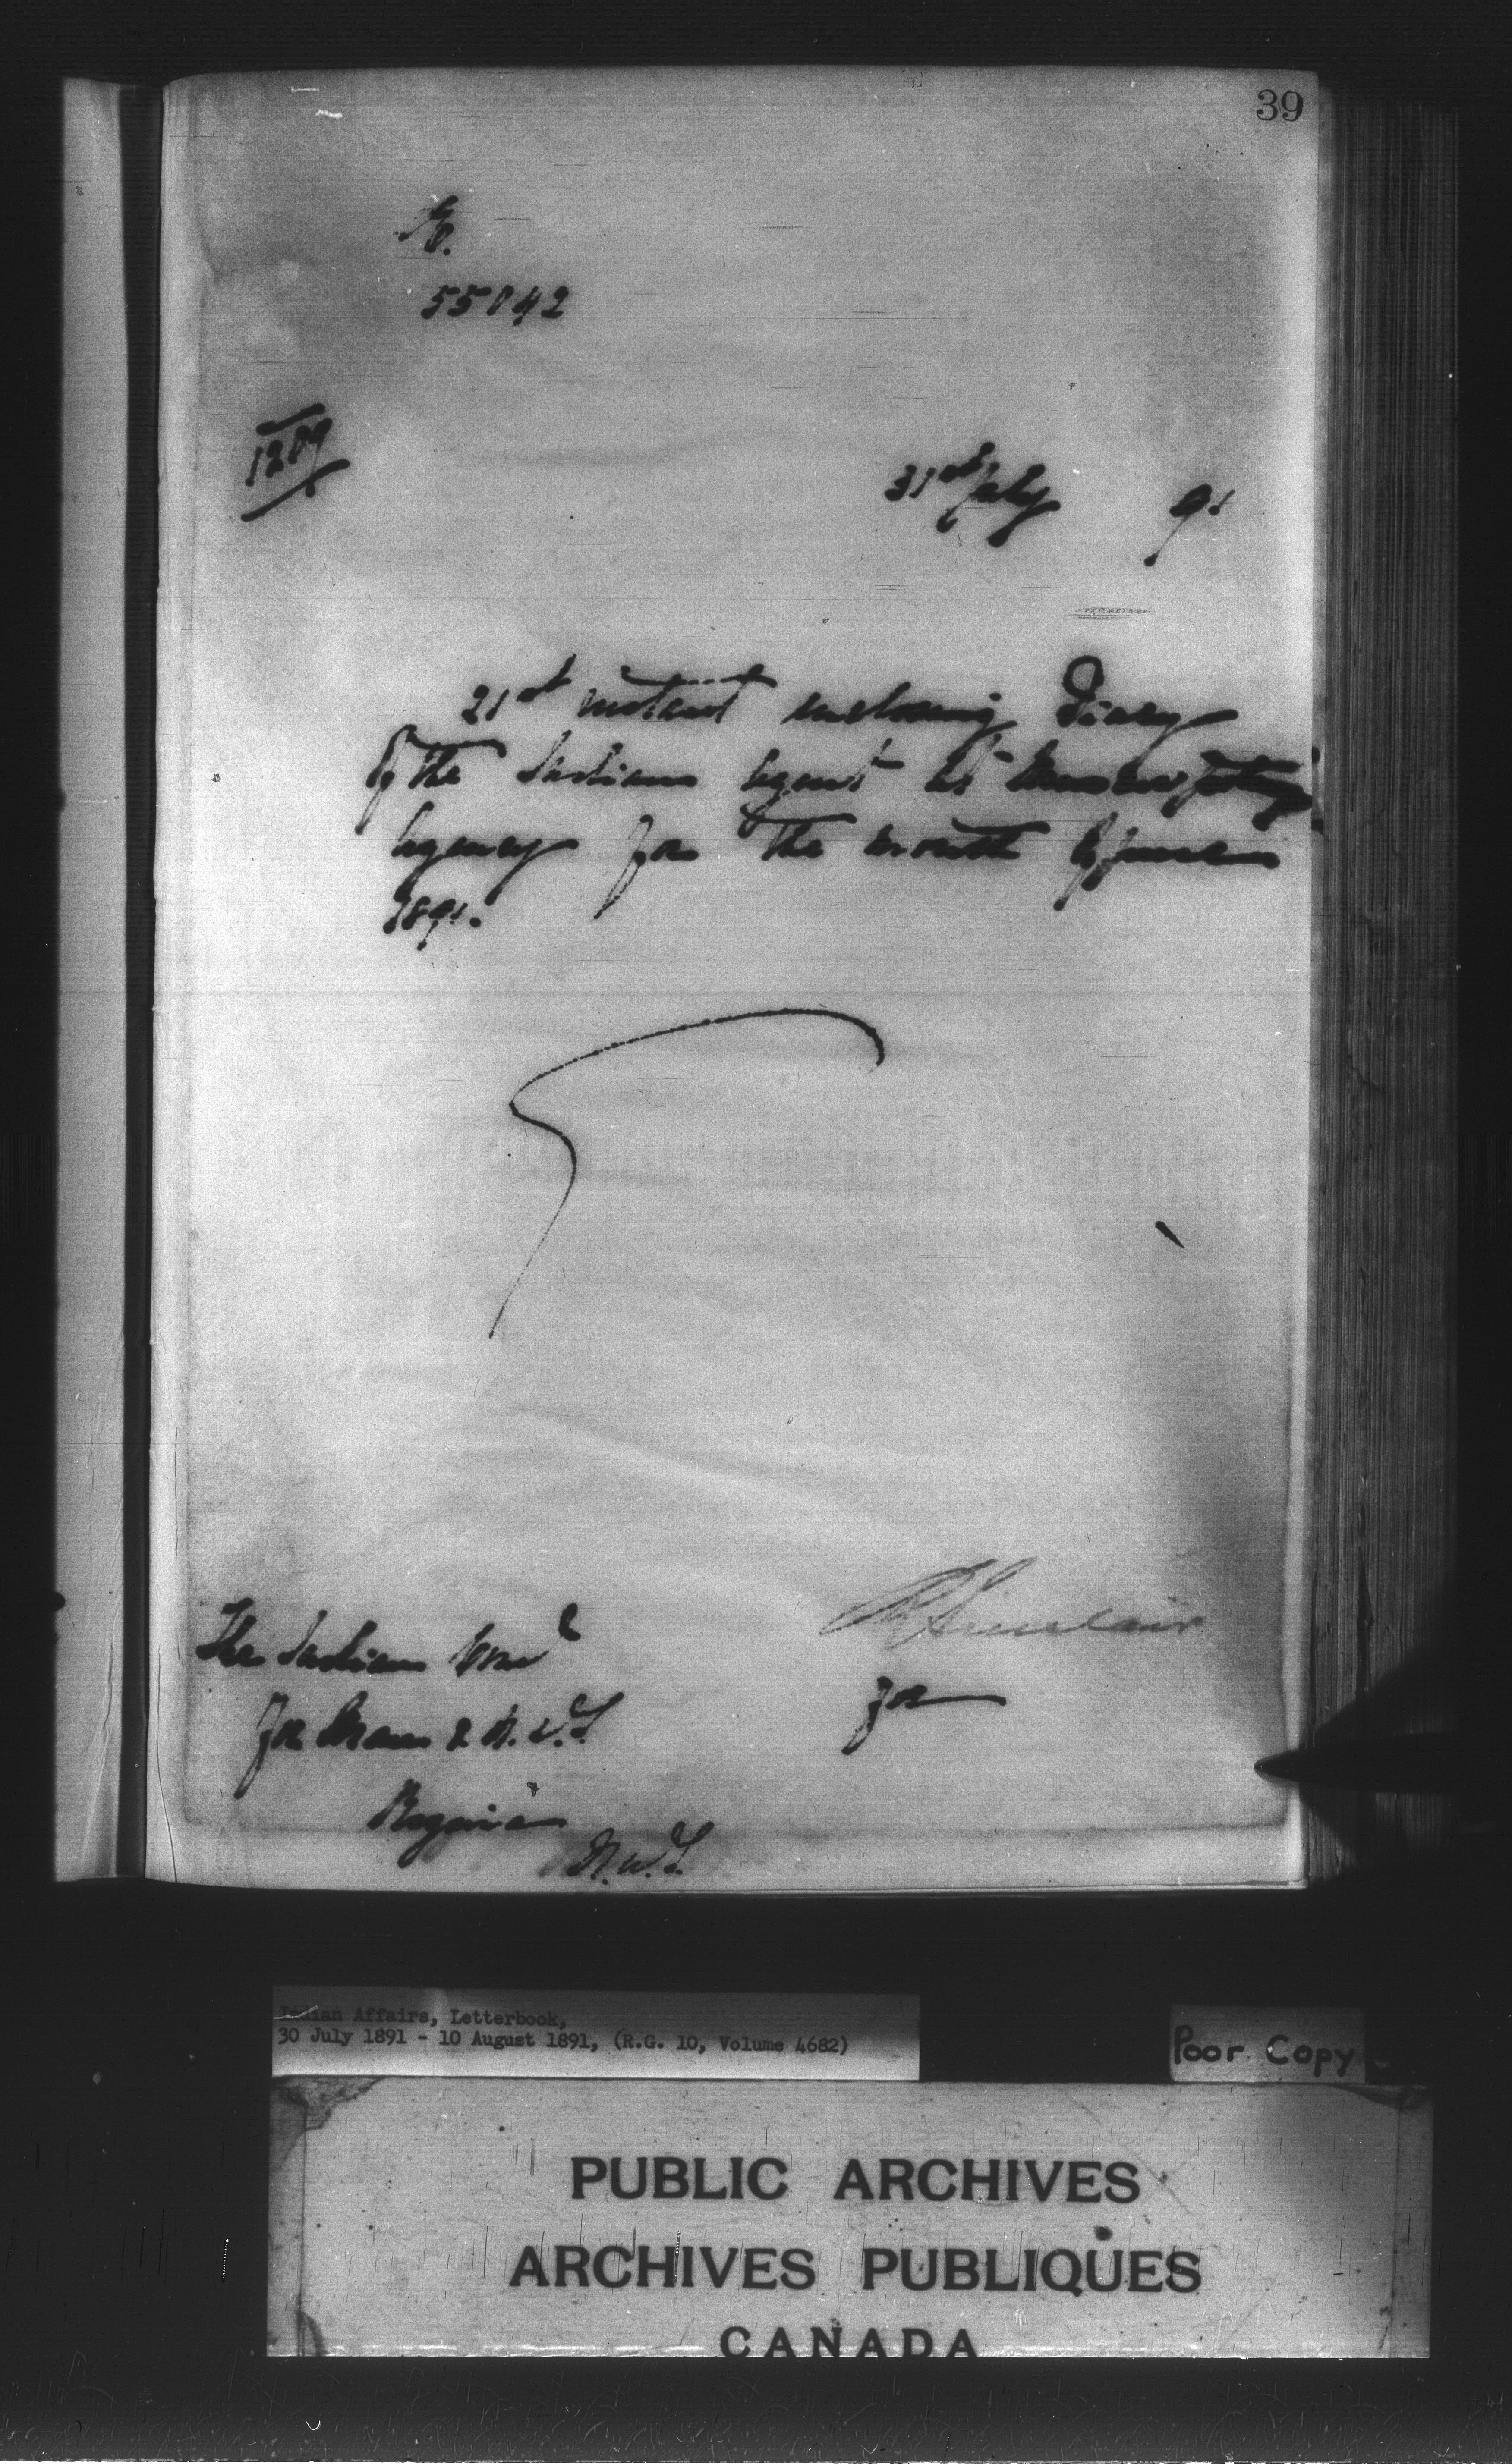 39
E.
55842
1289
31st July 91
21st instant enclosing Diary
of the Indian Agent at
Agency for the month of June
1891.
Sinclair
for
The Indian Comr
for Man & N.W.T.
Regina
N.W.T.
Indian Affairs, Letterbook,
30 July 1891 - 10 August 1891, (R.G. 10, Volume 4682)
Poor Copy
PUBLIC ARCHIVES
ARCHIVES PUBLIQUES
CANADA